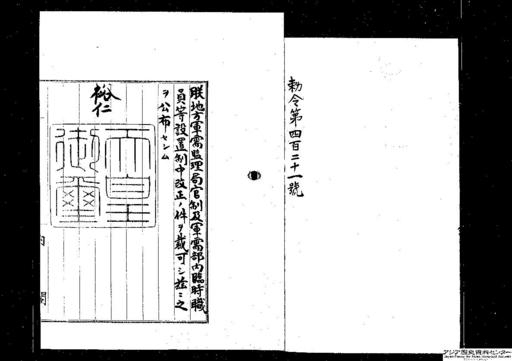 勅令第四百二十一號
朕地方軍需監理局官制及軍需部内臨時職
員等設置制中改正ノ件ヲ裁可シ茲ニ之
ヲ公布セシム
裕仁
天皇御璽
内閣
アジア歴史資料センター